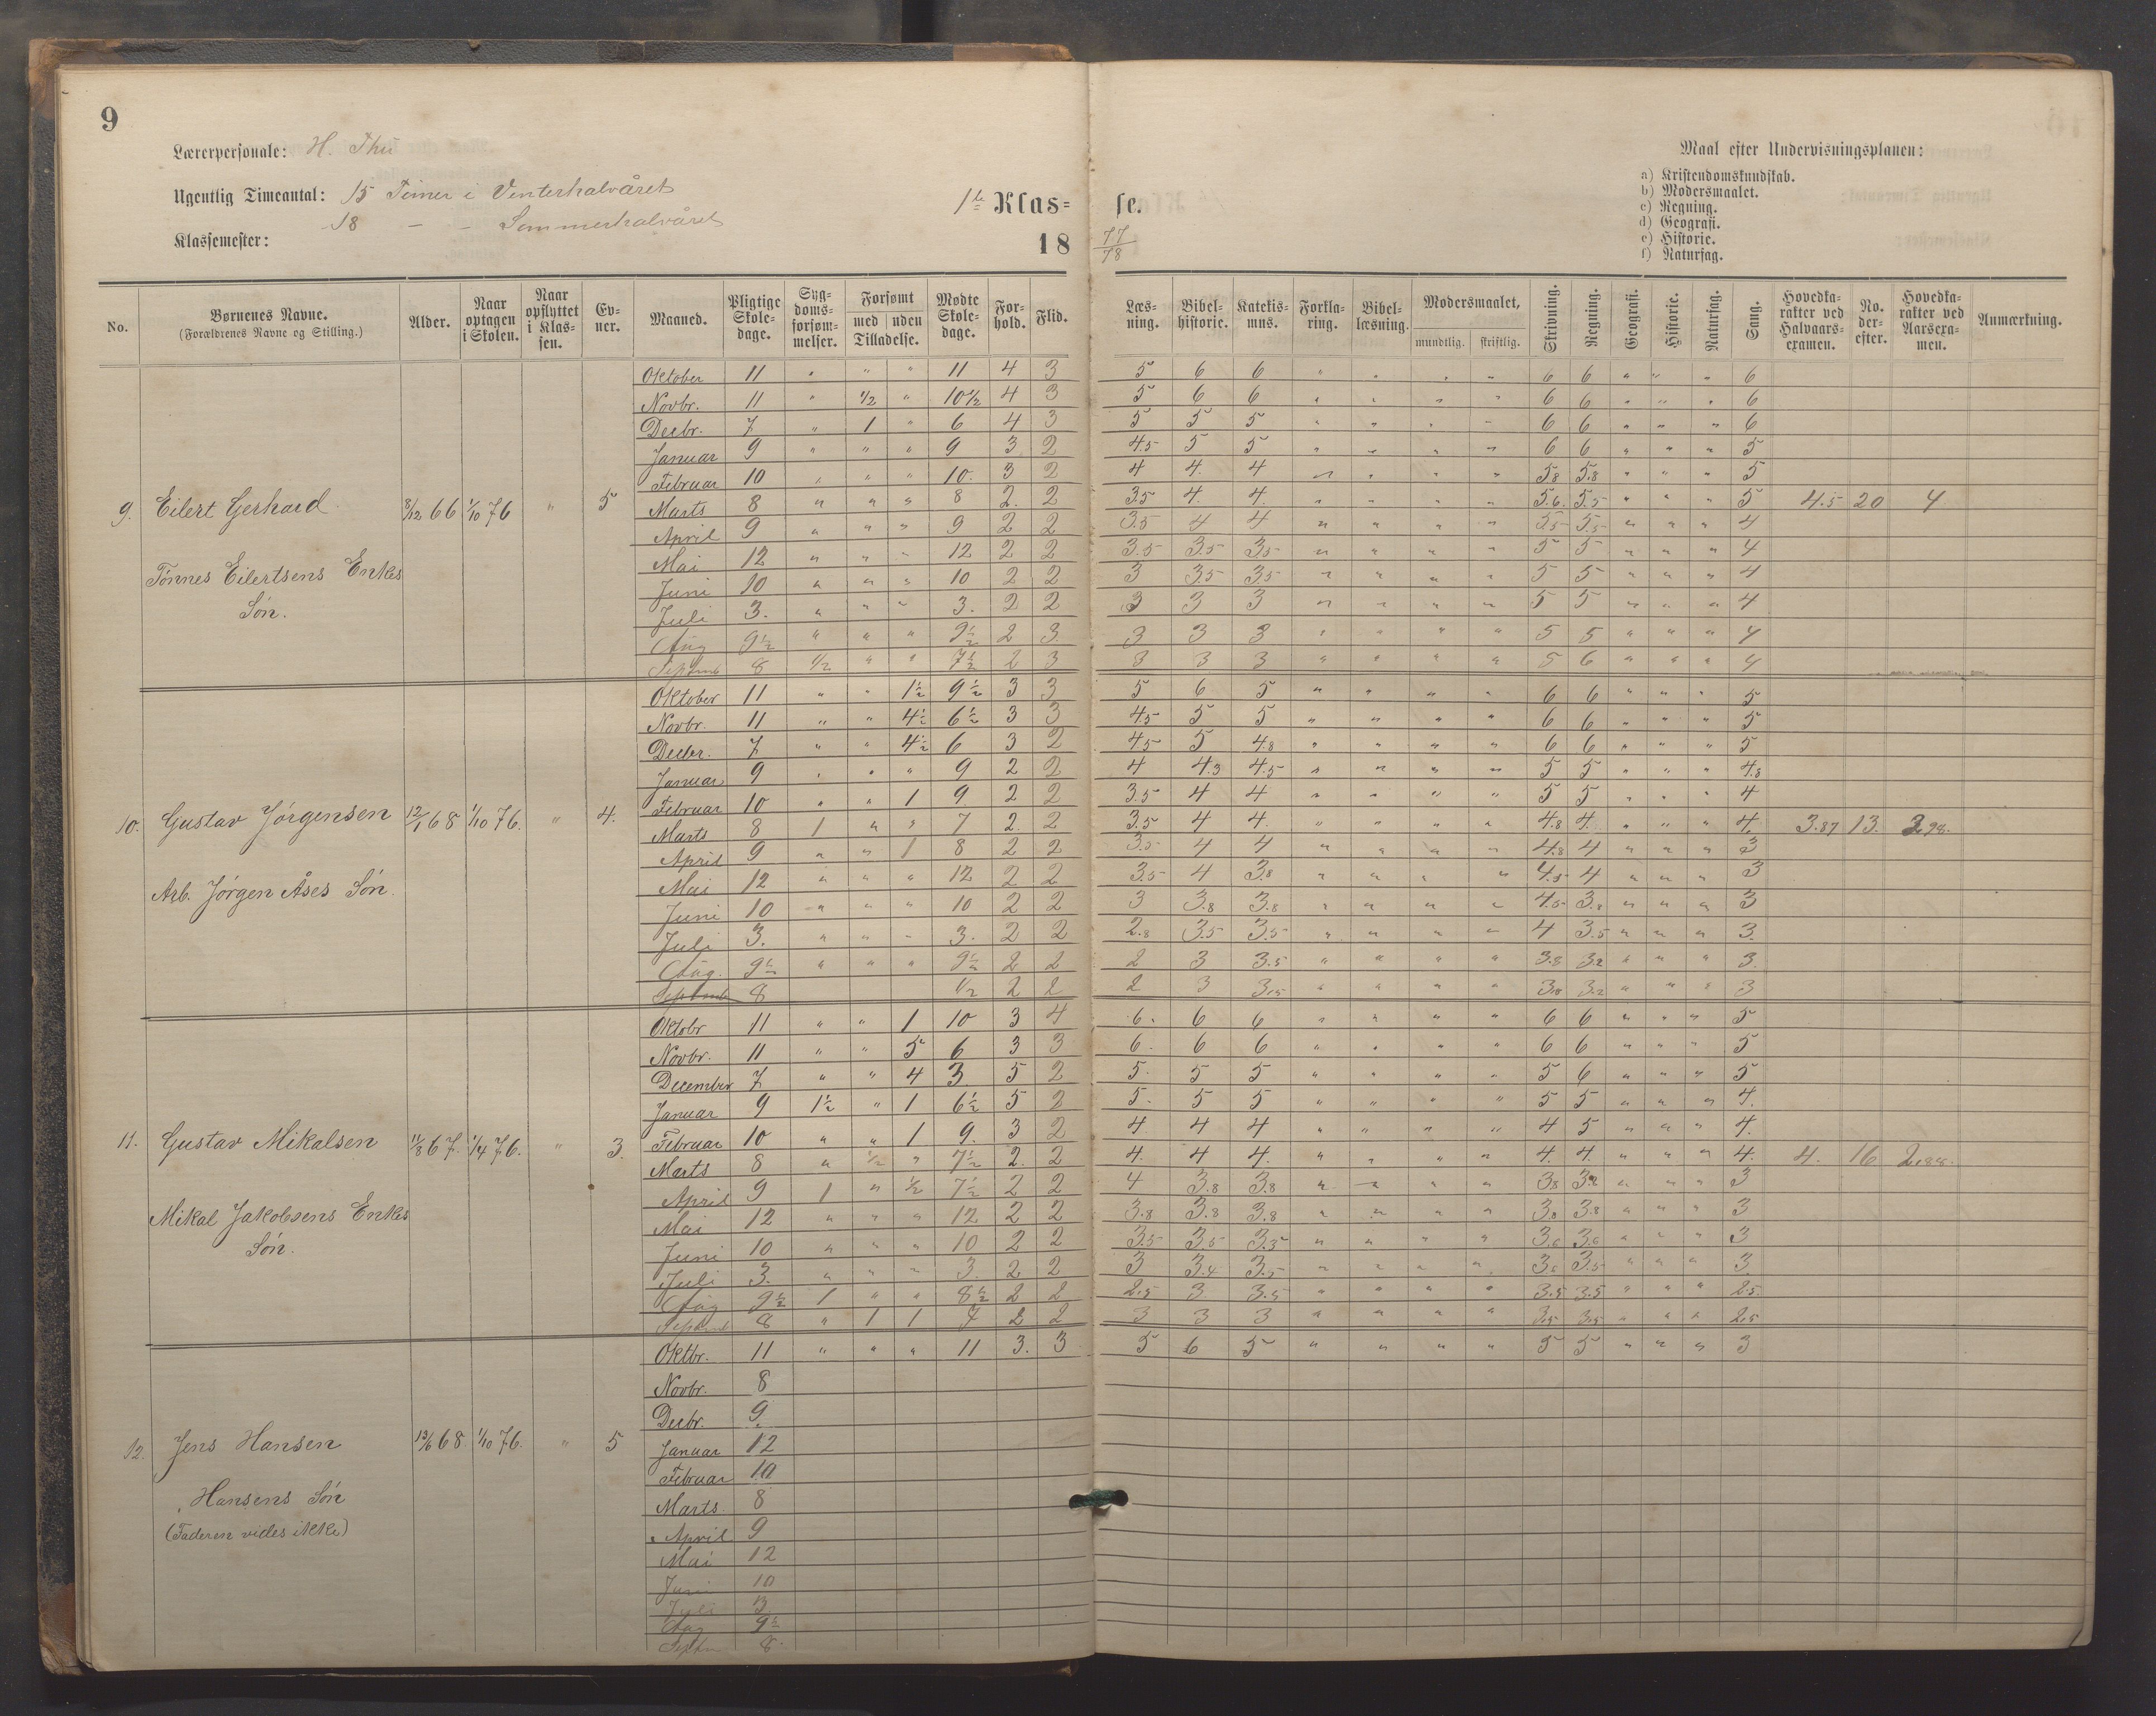 9
Lærerpersonale: H. Thu
Ugentlig Timeantal: 15 Timer i Vinterhalvåret
18 - - Sommerhalvåret
Klassemester:
1ste Klas= se.
18 77/78
Maal efter Undervisningsplanen:
a) Kristendomskundskab.
b) Modersmaalet.
c) Regning.
d) Geografi.
e) Historie.
f) Naturfag.
No. Børnenes Navne. (Forældrenes Navne og Stilling.) Alder. Naar optagen i Skolen. Naar opflyttet i Klassen. Evner. Maaned. Pligtige Skoledage. Sygdomsforsømmelser. Forsømt med uden Tilladelse. Mødte Skoledage. Forhold. Flid. Læsning. Bibelhistorie. Katekismus. Forklaring. Bibellæsning. Modersmaalet, mundtlig. skriftlig. Skrivning. Regning. Geografi. Historie. Naturfag. Sang. Hovedkarakter ved Halvaarsexamen. No. derefter. Hovedkarakter ved Aarsexamen. Anmærkning.
Oktober 11 " " " 11 4 3 5 6 6 " " " " 6 6 " " " 6
Novbr. 11 " 1/2 " 10 1/2 4 3 5 6 6 " " " " 6 6 " " " 6
Decbr. 7 " 1 " 6 4 3 5 5 5 " " " " 6 6 " " " 6
Januar 9 " " " 9 3 2 4.5 5 5 " " " " 6 6 " " " 5
Februar 10 " " " 10. 3 2 4 4. 4 " " " " 5.8 5.8 " " " 5
9. Eilert Gerhard 8/12 66 1/10 76 " 5 Marts 8 " " " 8 2. 2 3.5 4. 4. " " " " 5.6. 5.5 " " " 5 4.5 20 4
April 9 " " " 9 2 2 3.5 4 4 " " " " 5.5 5.5 " " " 4
Tönnes Eilertsens Enkes Mai 12 " " " 12 2 2 3.5 3.5 3.5 " " " " 5 5 " " " 4
Juni 10 " " " 10 2 2 3 3.5 3.5 " " " " 5 5 " " " 4
Sön. Juli 3. " " " 3. 2 2 3 3 3 " " " " 5 5 " " " 4
Aug 9 1/2 " " " 9 1/2 2 3 3 3 3 " " " " 5 5 " " " 4
Septemb 8 1/2 " " 7 1/2 2 3 3 3 3 " " " " 5 6 " " " 4
Oktober 11 " " 1 1/2 9 1/2 3 3 5 6 5 " " " " 6 6 " " " 5
Novbr. 11 " " 4 1/2 6 1/2 3 3 4.5 5 5 " " " " 6 6 " " " 5
Decbr. 7 " " 4 1/2 6 3 2 4.5 5 4.8 " " " " 6 6 " " " 5
Januar 9 " " " 9 2 2 4 4.3 4.5 " " " " 5 5 " " " 4.8
10. Gustav Jörgensen 12/1 68 1/10 76. " 4. Februar 10 " " 1 9 2 2 3.5 4 4 " " " " 5 5 " " " 4
Marts 8 1 " " 7 2. 2 3.5 4 4. " " " " 4.8 4. " " " 4. 3.87 13. 2,98.
April 9 " " 1 8 2 2 3.5 4 4 " " " " 4.8 4 " " " 3
Arb. Jörgen Åses Sön. Mai 12 " " " 12 2 2 3.5 4 3.8 " " " " 4.5 4 " " " 3
Juni 10 " " " 10 2 2 3 3.8 3.8 " " " " 4.5 3.8 " " " 3
Juli 3. " " " 3. 2 2 2.8 3.5 3.5 " " " " 4 3.5 " " " 3.
Aug. 9 1/2 " " " 9 1/2 2 2 2 3 3.5 " " " " 3.8 3.2 " " " 3.
Septemb 8 1/2 2 2 2 3 3,5 " " " " 3.8 3.2 " " " 3
Oktobr 11 " " 1 10 3 4 6. 6 6 " " " " 6 6 " " " 5
Novbr. 11 " " 5 6 3 3 6. 6 6 " " " " 6 6 " " " 5
December 7 " " 4 3 5 2 5. 5 5 " " " " 5 6 " " " 5
Januar 9 1 1/2 " 1 6 1/2 5 2 5. 5 5 " " " " 5 5 " " " 4.
11. Gustav Mikalsen 11/8 67. 1/4 76. " 3. Februar 10 " " 1 9. 3 2 4 4 4 " " " " 4 5 " " " 4.
Marts 8 " 1/2 " 7 1/2 2. 2 4. 4 4. " " " " 4. 4. " " " 4. 4. 16 2,88.
April 9 1 " 1/2 7 1/2 2 2 4 3.8 3.8 " " " " 3.8 3.8 " " " 3
Mikal Jakobsens Enkes Mai 12 " " " 12 2 2 3.8 3.8 3.8 " " " " 3.8 3.8 " " " 3
Sön. Juni 10 " " " 10 2 2 3.5 3.5 3.5 " " " " 3.6 3.6 " " " 3
Juli 3. " " " 3. 2 2 3 3.4 3.5 " " " " 3.5 3.5 " " " 3.
Aug 9 1/2 1 " " 8 1/2 2 2 2.5 3 3.5 " " " " 3.5 3.5 " " " 2.5
Septemb 8 " 1 1 7 2 2 3 3 3 " " " " 3,5 3,5 " " " 2,5
Oktbr. 11 " " " 11 3. 3 5 6 5 " " " " 5 5 " " " 3
Novbr. 8
Decbr. 9.
12. Jens Hansen 13/6 68 1/10 76. " 5 Januar 12
Februar 10
Hansens Sön Marts. 8
(Faderen vides ikke) April 9
Mai 12
Juni 10
Juli 3
Aug 9 1/2
Septm 8